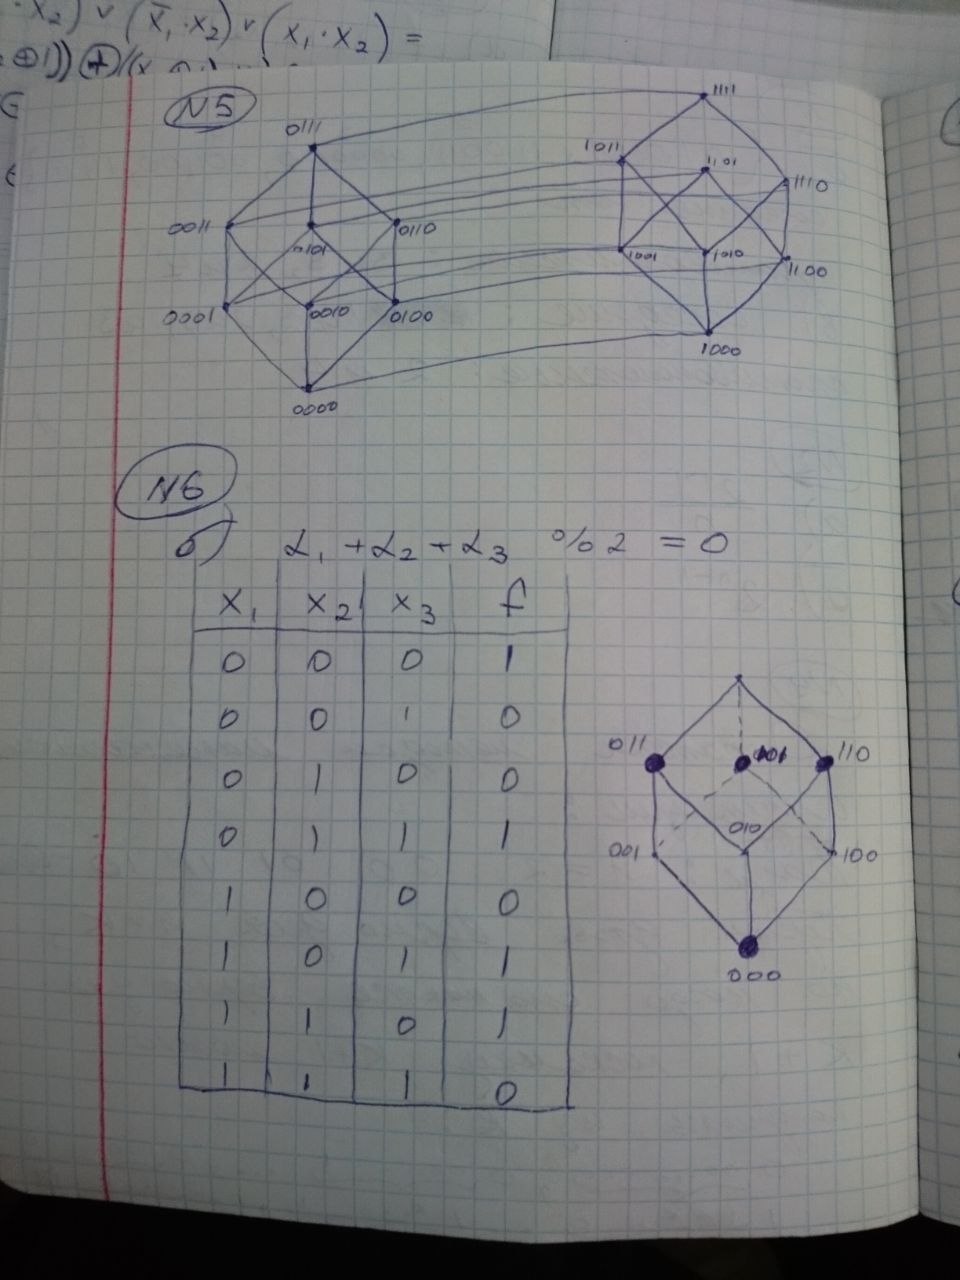 x₂) ∨ (x̄₁·x₂) ∨ (x₁·x₂) =
⊕1)) ⊕
N5
0111
1111
1011
1101
1110
0011
0101
0110
1001
1010
1100
0001
0010
0100
1000
0000
N6
б) α₁ + α₂ + α₃ % 2 = 0
x₁ x₂ x₃ f
0 0 0 1
0 0 1 0
0 1 0 0
0 1 1 1
1 0 0 0
1 0 1 1
1 1 0 1
1 1 1 0
011
101
110
001
010
100
000